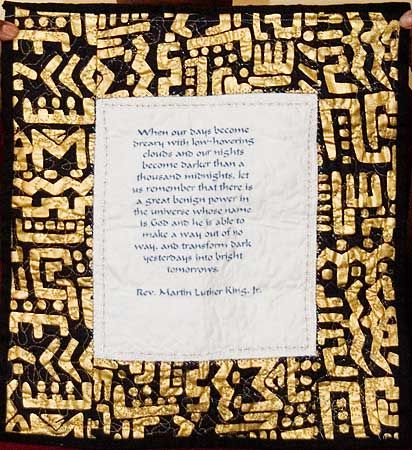 When our days become
dreary with low-hovering
clouds and our nights
become darker than a
thousand midnights, let
us remember that there is
a great benign power in
the universe whose name
is God and he is able to
make a way out of no
way, and transform dark
yesterdays into bright
tomorrows.
Rev. Martin Luther King, Jr.